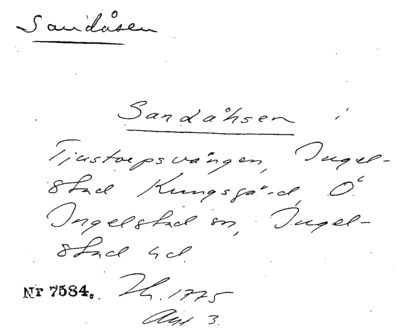 Sandåsen
Sandåhsen i
Tjustorpsvången, Ingel-
stad Kungsgård, Ö
Ingelstad sn, Ingel-
stad hd.
Nr 7584. Th. 1775
Akt 3.